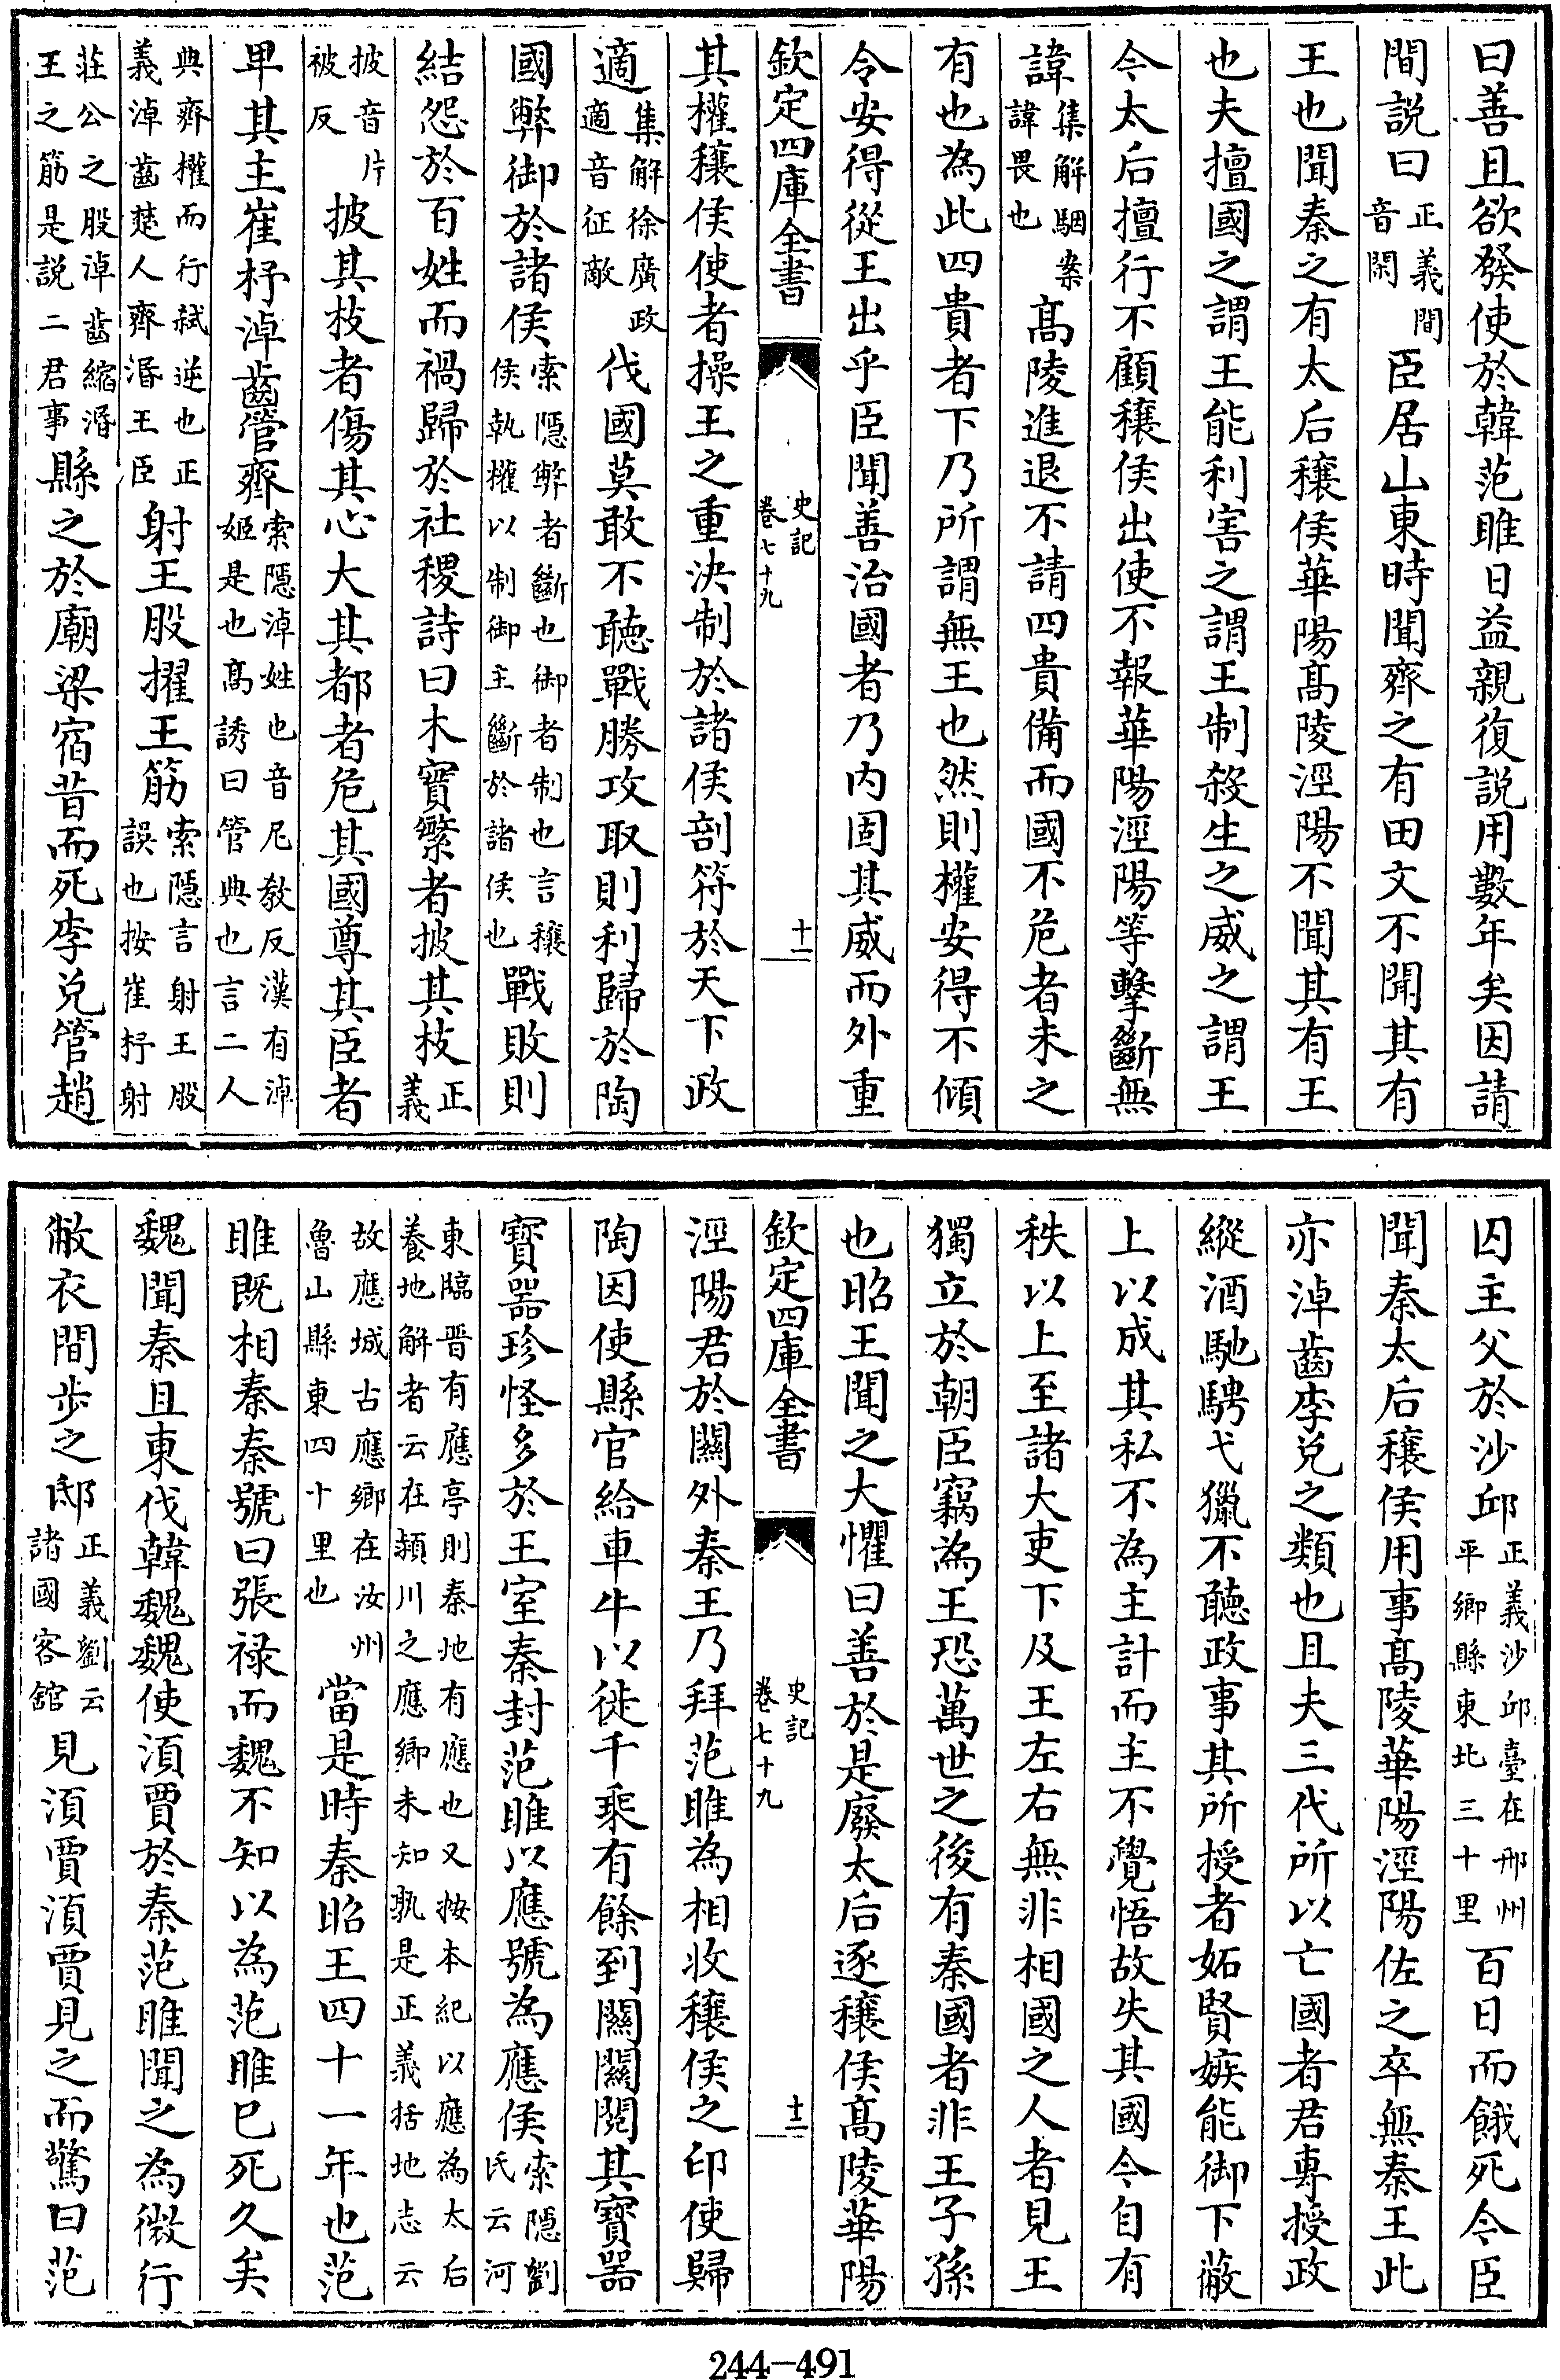 曰善且欲發使於韓范雎日益親復說用數年矣因請
間說曰正義間音閑臣居山東時聞齊之有田文不聞其有
王也聞秦之有太后穰侯華陽髙陵涇陽不聞其有王
也夫擅國之謂王能利害之謂王制殺生之威之謂王
今太后擅行不顧穰侯出使不報華陽涇陽等擊斷無
諱集解駰案諱畏也髙陵進退不請四貴備而國不危者未之
有也為此四貴者下乃所謂無王也然則權安得不傾
令安得從王出乎臣聞善治國者乃内固其威而外重
欽定四庫全書 史記卷七十九 十一
其權穰侯使者操王之重決制於諸侯剖符於天下政
適集解徐廣政適音征敵伐國莫敢不聽戰勝攻取則利歸於陶
國弊御於諸侯索隱弊者斷也御者制也言穰侯執權以制御主斷於諸侯也戰敗則
結怨於百姓而禍歸於社稷詩曰木實繁者披其枝正義
披音片被反披其枝者傷其心大其都者危其國尊其臣者
卑其主崔杼淖齒管齊索隱淖姓也音尼敎反漢有淖姬是也髙誘曰管典也言二人
典齊權而行弑逆也正義淖齒楚人齊湣王臣射王股擢王筋索隱言射王股誤也按崔杼射
莊公之股淖齒縮湣王之筋是說二君事縣之於廟梁宿昔而死李兌管趙
囚主父於沙邱正義沙邱臺在邢州平鄉縣東北三十里百日而餓死今臣
聞秦太后穰侯用事髙陵華陽涇陽佐之卒無秦王此
亦淖齒李兌之類也且夫三代所以亡國者君專授政
縱酒馳騁弋獵不聽政事其所授者妬賢嫉能御下蔽
上以成其私不為主計而主不覺悟故失其國今自有
秩以上至諸大吏下及王左右無非相國之人者見王
獨立於朝臣竊為王恐萬世之後有秦國者非王子孫
也昭王聞之大懼曰善於是廢太后逐穰侯髙陵華陽
欽定四庫全書 史記卷七十九 十二
涇陽君於關外秦王乃拜范雎為相收穰侯之印使歸
陶因使縣官給車牛以徙千乘有餘到關關閱其寶器
寶器珍怪多於王室秦封范雎以應號為應侯索隱劉氏云河
東臨晉有應亭則秦地有應也又按本紀以應為太后養地解者云在潁川之應鄉未知孰是正義括地志云
故應城古應鄉在汝州魯山縣東四十里也當是時秦昭王四十一年也范
雎既相秦秦號曰張禄而魏不知以為范雎已死久矣
魏聞秦且東伐韓魏魏使須賈於秦范雎聞之為微行
敝衣間步之邸正義劉云諸國客舘見須賈須賈見之而驚曰范
244-491